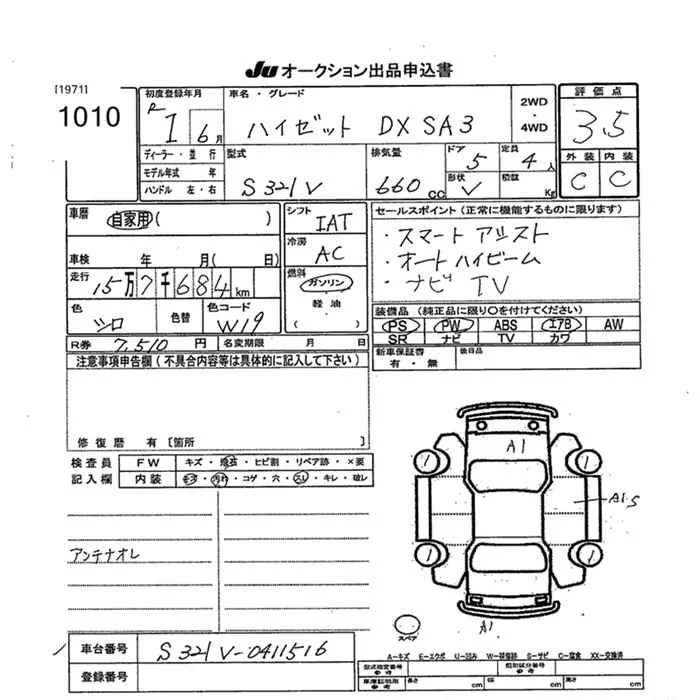 JU オークション出品申込書
[1971]
1010
初度登録年月
R 1 6月
車名・グレード
ハイゼット DX SA3
2WD
・
4WD
評価点
3.5
ディーラー・並行
モデル年式 年
ハンドル 左・右
型式
S321V
排気量
660 cc
ドア 5
形状 V
定員 4人
積載 Kg
外装 内装
C C
車暦 自家用( )
車検 年 月( 日)
走行 15万7千684km
色 シロ
色替
色コード W19
シフト IAT
冷房 AC
燃料
ガソリン
軽油
( )
セールスポイント(正常に機能するものに限ります)
・スマート アシスト
・オートハイビーム
・ナビ TV
装備品(純正品に限り○を付けてください)
PS PW ABS エアB AW
SR ナビ TV カワ
新車保証書
有・無
後日品
R券 7,510 円
名変期限 月 日
注意事項申告欄(不具合内容等は具体的に記入して下さい)
修復暦 有〔箇所 〕
検査員
記入欄
FW キズ・飛石・ヒビ割・リペア跡・×要
内装 キズ・汚れ・コゲ・穴・スレ・キレ・破レ
アンテナオレ
A1
A1.S
1
1
1
1
スペア
A1
A-キズ E-エクボ U-凹み W-補修跡 S-サビ C-腐食 XX-交換済
車台番号 S321V-0411516
登録番号
型式指定番号
参考
類別区分番号
参考
車庫証明用
参考
長さ cm
幅 cm
高さ cm